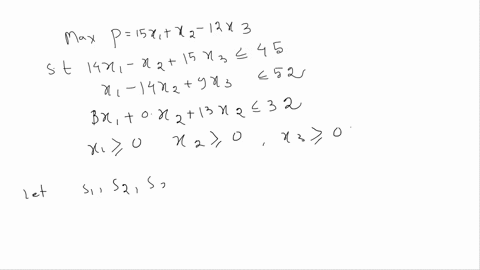 Max P = 15x1 + x2 - 12x3
St 14x1 - x2 + 15x3 ≤ 45
x1 - 14x2 + 9x3 ≤ 52
3x1 + 0.x2 + 13x2 ≤ 32
x1 ≥ 0 x2 ≥ 0, x3 ≥ 0
Let s1, s2, s